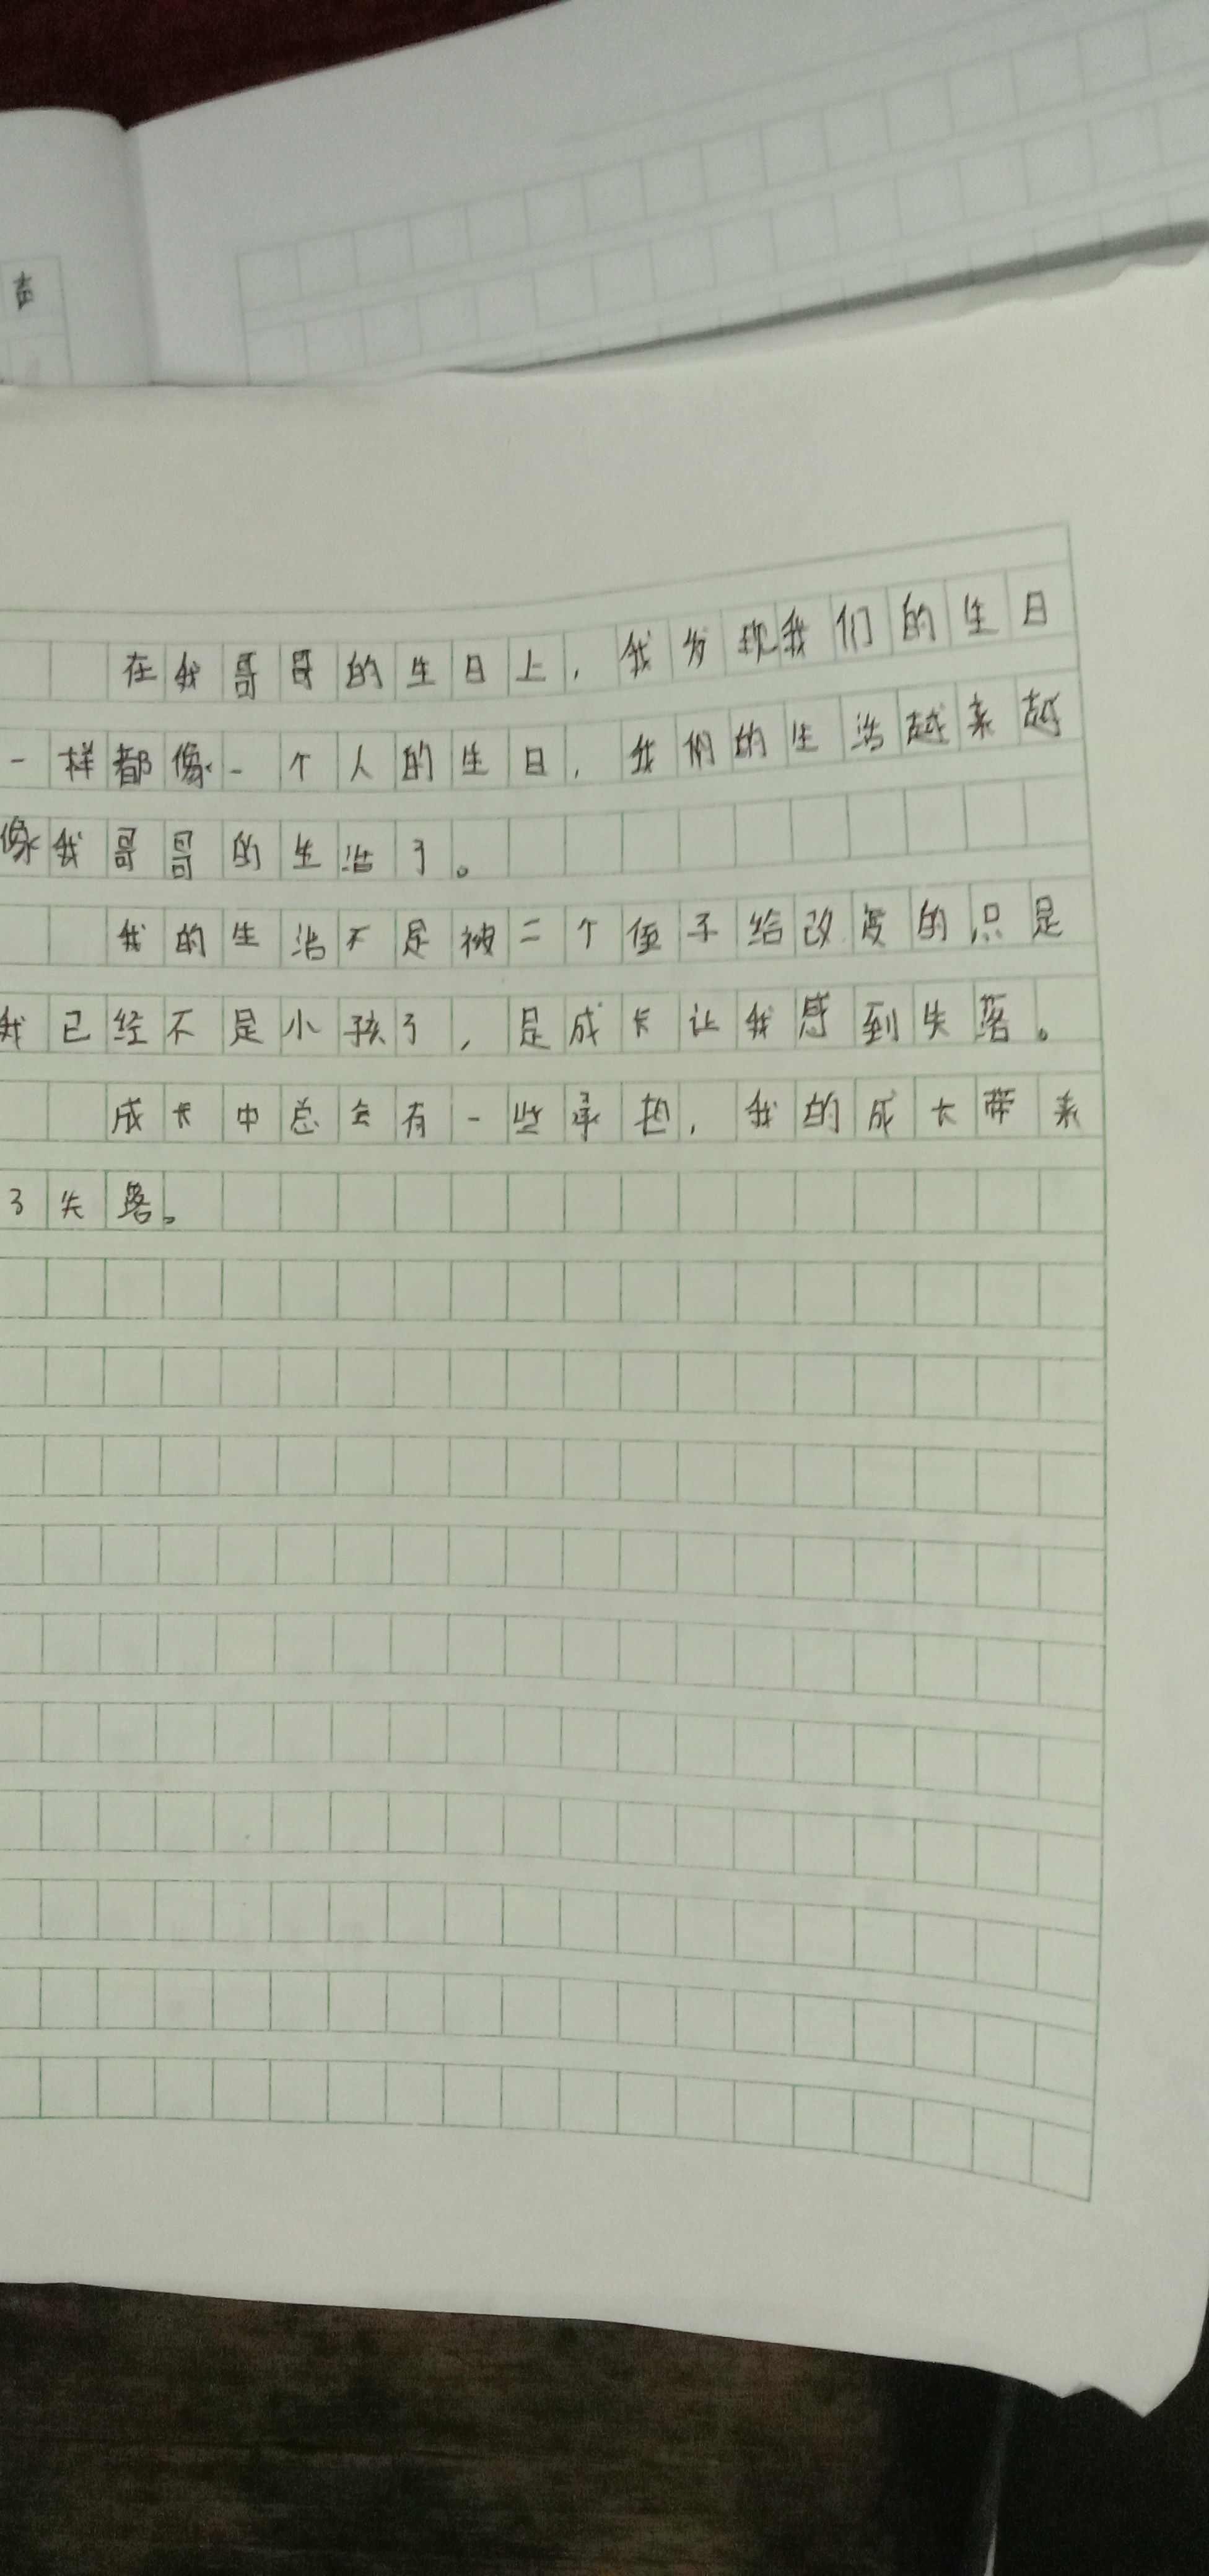 在我哥哥的生日上，我发现我们的生日
一样都像一个人的生日，我们的生活越来越
像我哥哥的生活了。
我的生活不是被二个侄子给改变的，只是
我已经不是小孩了，是成长让我感到失落。
成长中总会有一些承担，我的成长带来
了失落。